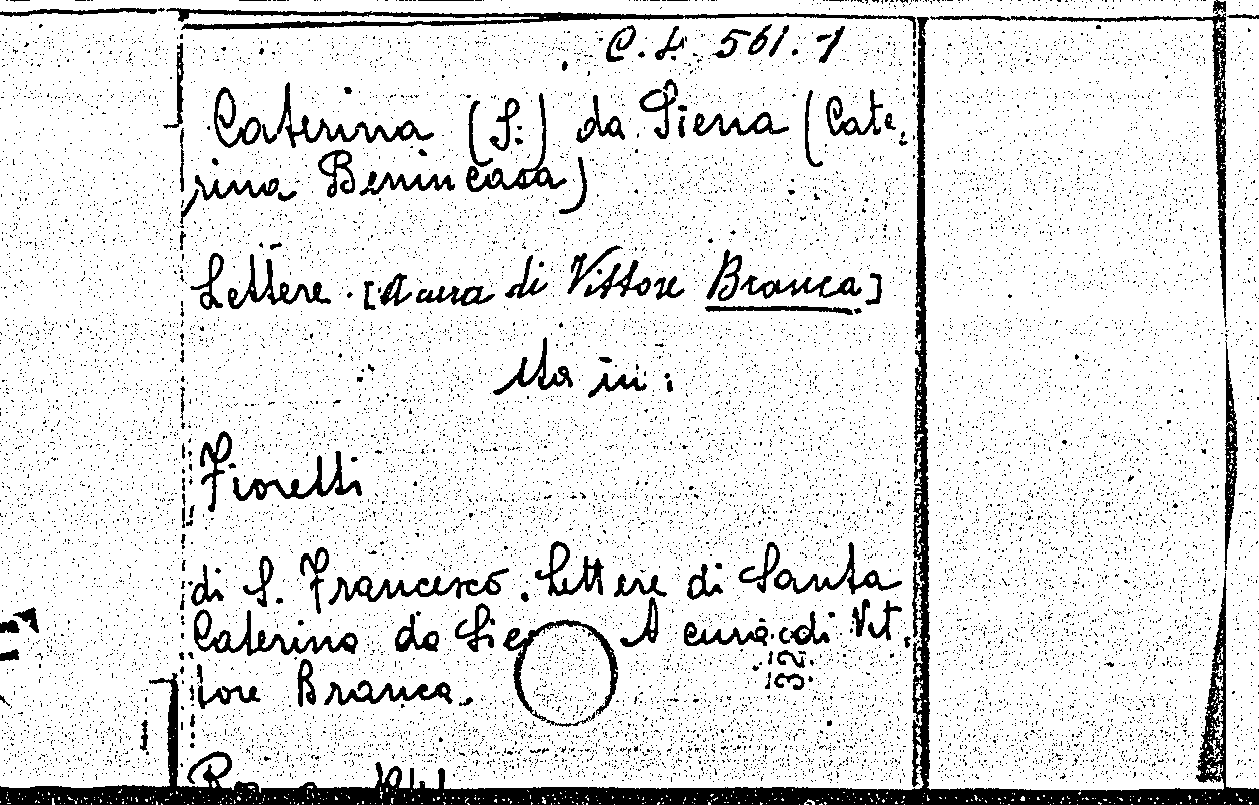 C.L. 561.7
Caterina (S.) da Siena (Cate,
rina Benincasa)
Lettere. [A cura di Vittore Branca]
Sta in:
Fioretti
di S. Francesco. Lettere di Santa
Caterina da Sie A cura di Vit,
tore Branca.
32